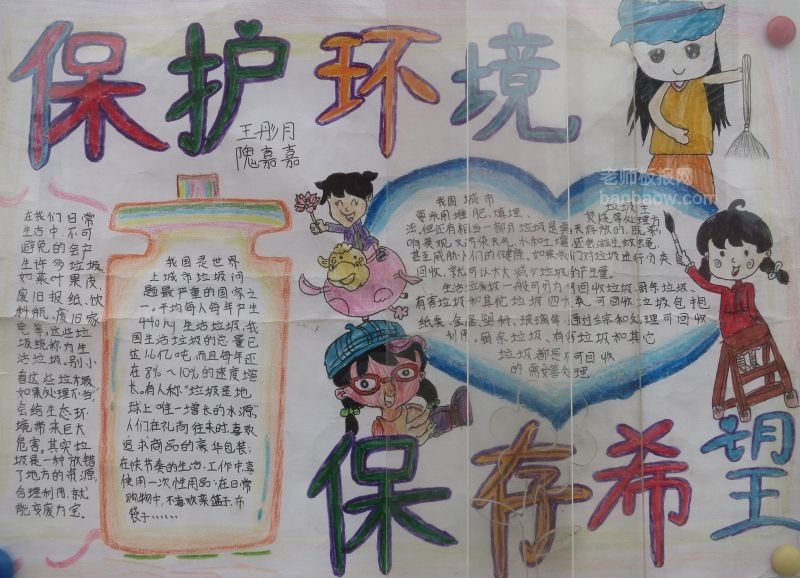 保护环境
王彤月
隗嘉嘉
老师板报网
banbaow.com
在我们日常
生活中,不可
避免的会产
生许多垃圾,
如菜叶果皮、
废旧报纸、饮
料瓶、废旧家
电等,这些垃
圾统称为生
活垃圾。别小
看这些垃圾,
如果处理不当,
会给生态环
境带来巨大
危害。其实垃
圾是一种放错
了地方的资源,
合理利用,就
能变废为宝。
我国是世界
上城市垃圾问
题最严重的国家之
一。平均每人每年产生
440kg生活垃圾,我
国生活垃圾的总量已
达1.6亿吨,而且每年还
在8%~10%的速度增
长。有人称“垃圾是地
球上唯一增长的水源”,
人们在礼尚往来时,喜欢
追求商品的豪华包装;
在快节奏的生活、工作中喜
使用一次性用品;在日常
购物中,不喜欢菜篮子、布
袋子……
我国城市
垃圾主
要采用堆肥、填埋、
焚烧等处理方
法,但还有相当一部分垃圾是露天存放的,既影
响景观,又污染大气、水和土壤,还坐滋生蚊蝇,
甚至威胁人们的健康。如果我们对垃圾进行分类
回收,就可以大大减少垃圾的产生量。
生活垃圾一般可分为可回收垃圾、厨余垃圾、
有害垃圾和其他垃圾四大类。可回收垃圾包括
纸类、金属、塑料、玻璃等,通过综合处理可回收
利用。厨余垃圾、有害垃圾和其它
垃圾都是不可回收
的需要善处理
保存希望